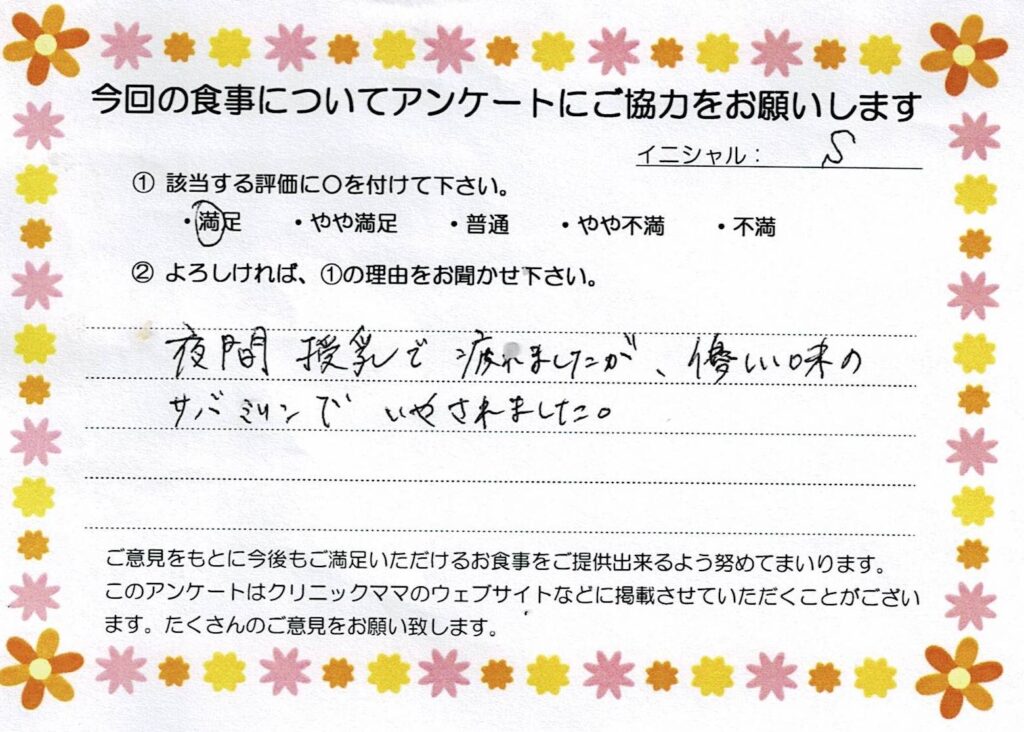 今回の食事についてアンケートにご協力をお願いします
イニシャル： S
① 該当する評価に〇を付けて下さい。
・満足 ・やや満足 ・普通 ・やや不満 ・不満
② よろしければ、①の理由をお聞かせ下さい。
夜間授乳で疲れましたが、優しい味の
サバミリンでいやされました。
ご意見をもとに今後もご満足いただけるお食事をご提供出来るよう努めてまいります。
このアンケートはクリニックママのウェブサイトなどに掲載させていただくことがござい
ます。たくさんのご意見をお願い致します。